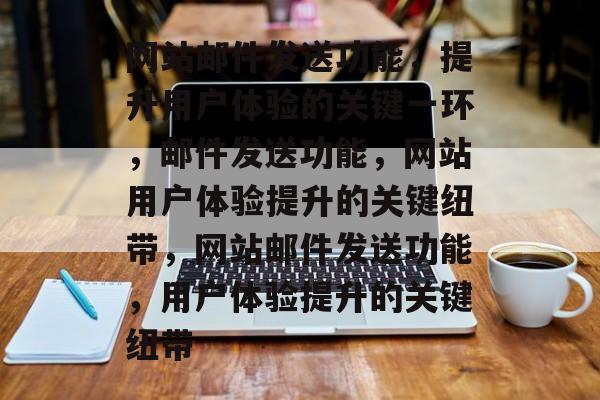 网站邮件发送功能，提
升用户体验的关键一环
，邮件发送功能，网站
用户体验提升的关键纽
带，网站邮件发送功能
，用户体验提升的关键
纽带